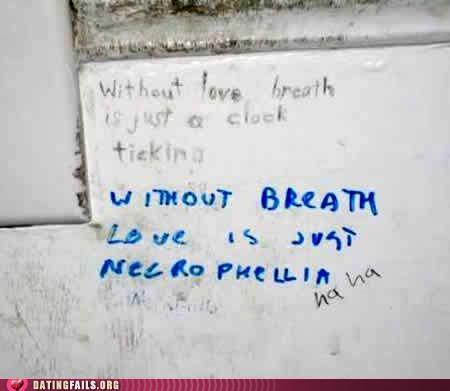 Without love breath
is just a clock
ticking
WITHOUT BREATH
LOVE IS JUST
NECROPHELLIA
ha ha
DATINGFAILS.ORG